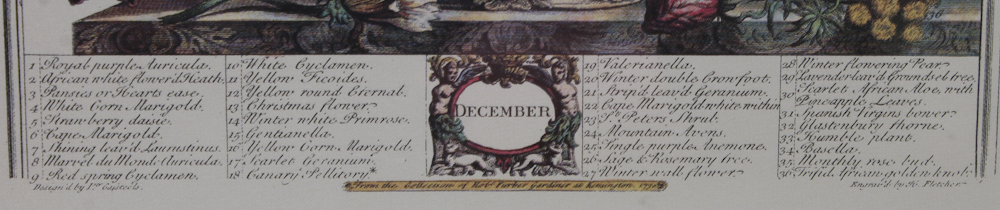 1 Royal purple Auricula.
2 African white flower'd Heath.
3 Pansies or Hearts ease.
4 White Corn Marigold.
5 Strawberry daisie.
6 Cape Marigold.
7 Shining leav'd Laurustinus.
8 Marvel du Mond Auricula.
9 Red spring Cyclamen.
10 White Cyclamen.
11 Yellow Ficoides.
12 Yellow round Eternal.
13 Christmas flower.
14 Winter white Primrose.
15 Gentianella.
16 Yellow Corn Marigold.
17 Scarlet Geranium.
18 Canary Pellitory.
DECEMBER
19 Valerianella.
20 Winter double Cronfoot.
21 Strip'd leav'd Geranium.
22 Cape Marigold white within
23 St. Peters Shrub.
24 Mountain Avons.
25 Single purple Anemone.
26 Sage & Rosemary tree.
27 Winter wall flower
28 Winter flowering Pear
29 Lavender leav'd Groundsel tree.
30 Scarlet African Aloe, with
Pineapple Leaves.
31 Spanish Virgins bower
32 Glastenbury thorne.
33 Humble plant.
34 Basella.
35 Monthly rose bud.
36 Trifid African golden knob
Design'd by Casteels.
From the Collection of Robt. Furber Gardiner at Kensington. 1730
Engrav'd by H. Fletcher
36